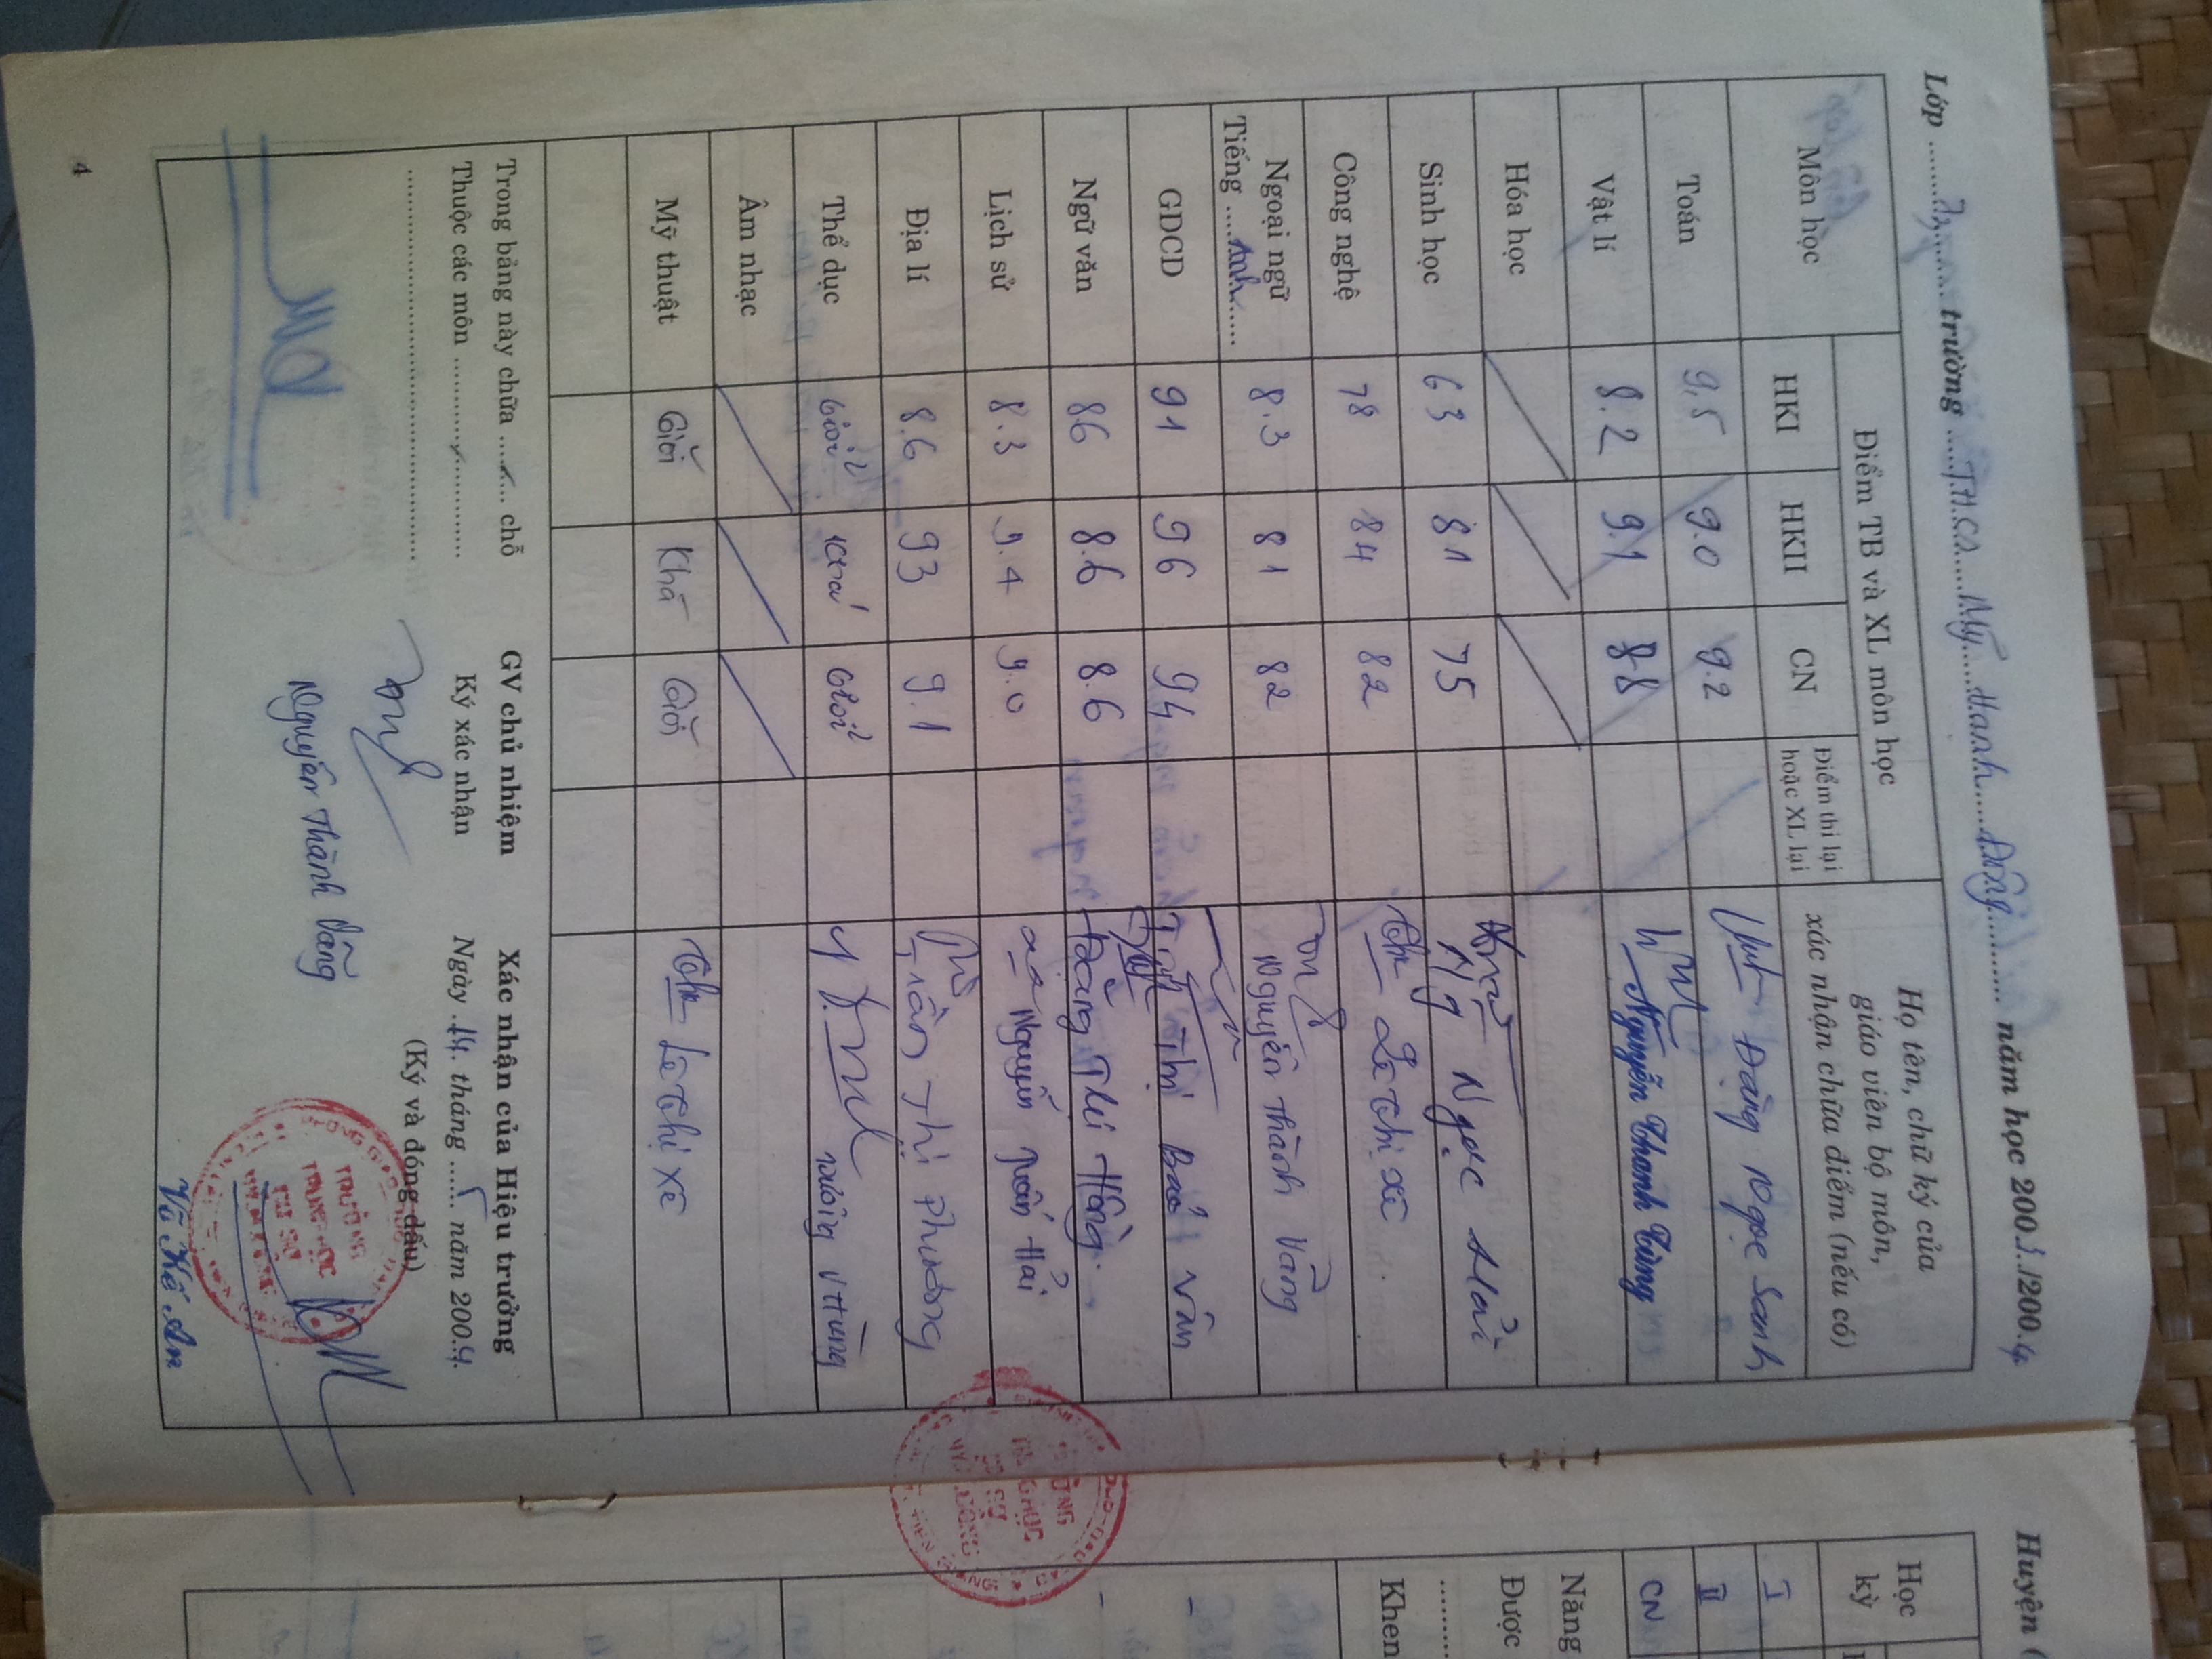 Lớp ........ trường THCS Mỹ Hạnh Đông năm học 2003/2004
Môn học
Điểm TB và XL môn học
Họ tên, chữ ký của giáo viên bộ môn, xác nhận chữa điểm (nếu có)
HKI HKII CN Điểm thi lại hoặc XL lại
Toán 9,5 9.0 9.2 Đặng Ngọc Sanh
Vật lí 8.2 9.1 8.8 Nguyễn Thanh Tùng
Hóa học
Sinh học 63 81 75 Ngọc Mai
Công nghệ 78 84 82 Lê Thị Xê
Ngoại ngữ
Tiếng Anh 8.3 81 82 Nguyễn Thành Vàng
GDCD 91 96 94 Thị Bảo Vân
Ngữ văn 86 8.6 8.6 Thị Hồng
Lịch sử 8.3 9.4 9.0 Nguyễn Xuân Hải
Địa lí 8.6 93 9.1 Trần Thị Phương
Thể dục Giỏi Khá Giỏi V Hùng
Âm nhạc
Mỹ thuật Giỏi Khá Giỏi Lê Thị Xê
Trong bảng này chữa ........ chỗ
Thuộc các môn ........
GV chủ nhiệm
Ký xác nhận
Nguyễn Thành Vàng
Xác nhận của Hiệu trưởng
Ngày 14 tháng 5 năm 2004
(Ký và đóng dấu)
TRƯỜNG
TRUNG HỌC
CƠ SỞ
Võ Kế An
4
Huyện
Học kỳ
I
II
CN
Năng
Được
Khen